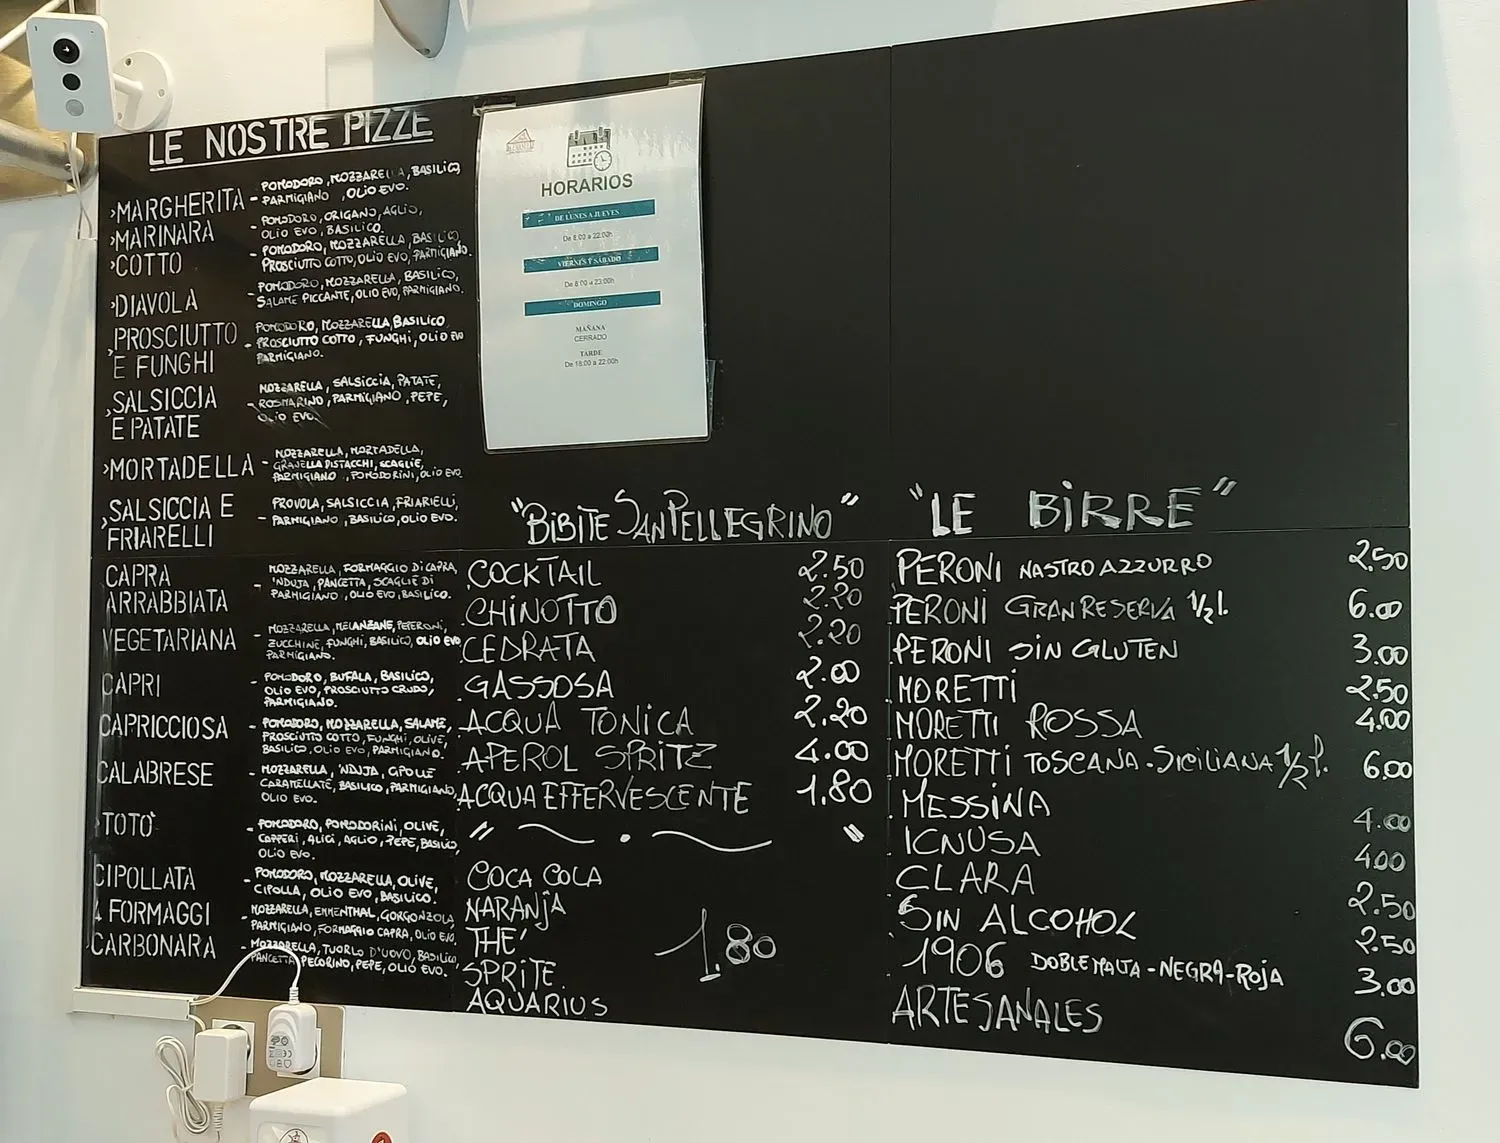 LE NOSTRE PIZZE
>MARGHERITA - POMODORO, MOZZARELLA, BASILICO
PARMIGIANO, OLIO EVO.
>MARINARA - POMODORO, ORIGANO, AGLIO,
OLIO EVO, BASILICO.
>COTTO - POMODORO, MOZZARELLA, BASILICO,
PROSCIUTTO COTTO, OLIO EVO, PARMIGIANO.
>DIAVOLA POMODORO, MOZZARELLA, BASILICO,
SALAME PICCANTE, OLIO EVO, PARMIGIANO.
>PROSCIUTTO E FUNGHI - POMODORO, MOZZARELLA, BASILICO
PROSCIUTTO COTTO, FUNGHI, OLIO EVO
PARMIGIANO.
>SALSICCIA E PATATE - MOZZARELLA, SALSICCIA, PATATE,
ROSMARINO, PARMIGIANO, PEPE,
OLIO EVO.
>MORTADELLA - MOZZARELLA, MORTADELLA,
GRANELLA PISTACCHI, SCAGLIE,
PARMIGIANO, POMODORINI, OLIO EVO.
>SALSICCIA E FRIARELLI - PROVOLA, SALSICCIA, FRIARIELLI,
PARMIGIANO, BASILICO, OLIO EVO.
CAPRA ARRABBIATA - MOZZARELLA, FORMAGGIO DI CAPRA,
'NDUJA, PANCETTA, SCAGLIE DI
PARMIGIANO, OLIO EVO, BASILICO.
VEGETARIANA - MOZZARELLA, MELANZANE, PEPERONI,
ZUCCHINE, FUNGHI, BASILICO, OLIO EVO
PARMIGIANO.
CAPRI - POMODORO, BUFALA, BASILICO,
OLIO EVO, PROSCIUTTO CRUDO,
PARMIGIANO.
CAPRICCIOSA - POMODORO, MOZZARELLA, SALAME,
PROSCIUTTO COTTO, FUNGHI, OLIVE,
BASILICO, OLIO EVO, PARMIGIANO.
CALABRESE - MOZZARELLA, 'NDUJA, CIPOLLE
CARAMELLATE, BASILICO, PARMIGIANO,
OLIO EVO.
TOTO' - POMODORO, POMODORINI, OLIVE,
CAPPERI, ALICI, AGLIO, PEPE, BASILICO
OLIO EVO.
CIPOLLATA - POMODORO, MOZZARELLA, OLIVE,
CIPOLLA, OLIO EVO, BASILICO.
4 FORMAGGI - MOZZARELLA, EMMENTHAL, GORGONZOLA,
PARMIGIANO, FORMAGGIO CAPRA, OLIO EVO.
CARBONARA - MOZZARELLA, TUORLO D'UOVO, BASILICO
PANCETTA PECORINO, PEPE, OLIO EVO.
HORARIOS
DE LUNES A JUEVES
De 8:00 a 22:00h
VIERNES Y SÁBADO
De 8:00 a 23:00h
DOMINGO
MAÑANA
CERRADO
TARDE
De 18:00 a 22:00h
"BIBITE SANPELLEGRINO"
COCKTAIL 2.50
CHINOTTO 2.20
CEDRATA 2.20
GASSOSA 2.00
ACQUA TONICA 2.20
APEROL SPRITZ 4.00
ACQUA EFFERVESCENTE 1.80
COCA COLA
NARANJA
THE'
SPRITE.
AQUARIUS
1.80
"LE BIRRE"
PERONI NASTRO AZZURRO 2.50
PERONI GRAN RESERVA 1/2 l. 6.00
PERONI SIN GLUTEN 3.00
MORETTI 2.50
MORETTI ROSSA 4.00
MORETTI TOSCANA - SICILIANA 1/2 l. 6.00
MESSINA 4.00
ICNUSA 4.00
CLARA 2.50
SIN ALCOHOL 2.50
1906 DOBLE MALTA - NEGRA - ROJA 3.00
ARTESANALES 6.00